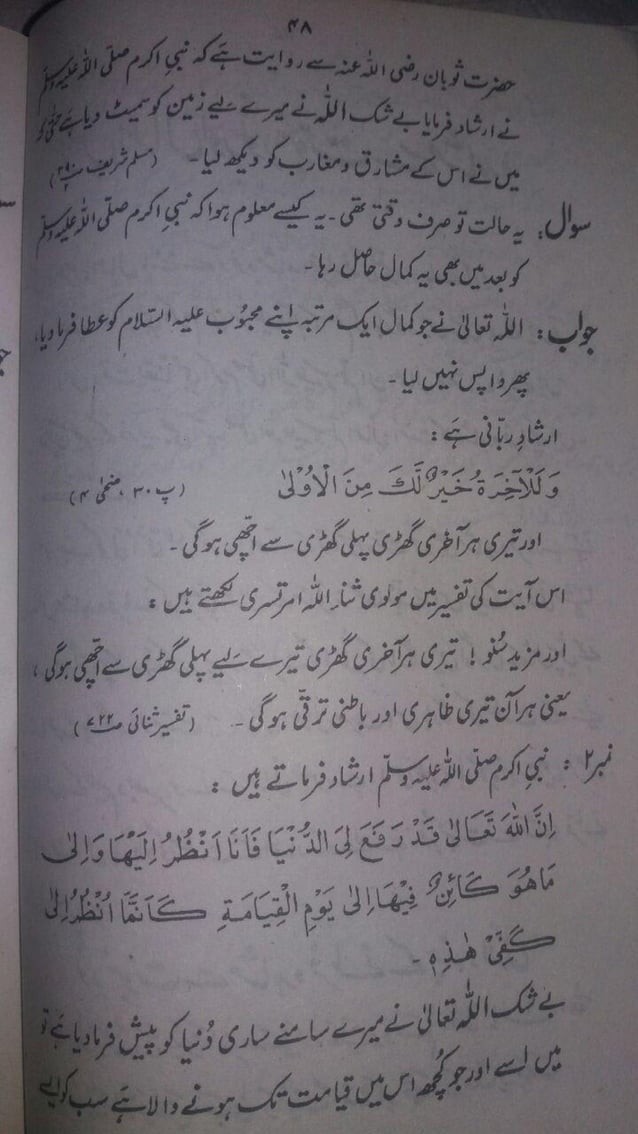 ۴۸
حضرت ثوبان رضی اللہ عنہ سے روایت ہے کہ نبی اکرم صلی اللہ علیہ وسلم
نے ارشاد فرمایا بے شک اللہ نے میرے لیے زمین کو سمیٹ دیا ہے حتّٰی کہ
میں نے اس کے مشارق و مغارب کو دیکھ لیا۔ (مسلم شریف ص۳۹۰)
سوال: یہ حالت تو صرف وقتی تھی۔ یہ کیسے معلوم ہوا کہ نبی اکرم صلی اللہ علیہ وسلم
کو بعد میں بھی یہ کمال حاصل رہا۔
جواب: اللہ تعالیٰ نے جو کمال ایک مرتبہ اپنے محبوب علیہ السلام کو عطا فرما دیا،
پھر واپس نہیں لیا۔
ارشادِ ربّانی ہے:
وَلَلْاٰخِرَةُ خَيْرٌ لَّكَ مِنَ الْاُوْلٰى (پ ۳۰، ضحٰی ۴)
اور تیری ہر آخری گھڑی پہلی گھڑی سے اچھی ہوگی۔
اس آیت کی تفسیر میں مولوی ثناء اللہ امرتسری لکھتے ہیں:
اور مزید سُنو! تیری ہر آخری گھڑی تیرے لیے پہلی گھڑی سے اچھی ہوگی،
یعنی ہر آن تیری ظاہری اور باطنی ترقی ہوگی۔ (تفسیر ثنائی ص۷۲۲)
نمبر۲: نبی اکرم صلی اللہ علیہ وسلم ارشاد فرماتے ہیں:
اِنَّ اللّٰهَ تَعَالٰى قَدْ رَفَعَ لِىَ الدُّنْيَا فَاَنَا اَنْظُرُ اِلَيْهَا وَاِلٰى
مَا هُوَ كَائِنٌ فِيْهَا اِلٰى يَوْمِ الْقِيَامَةِ كَاَنَّمَا اَنْظُرُ اِلٰى
كَفِّىْ هٰذِهٖ۔
بے شک اللہ تعالیٰ نے میرے سامنے ساری دُنیا کو پیش فرما دیا ہے تو
میں اسے اور جو کچھ اس میں قیامت تک ہونے والا ہے سب کو ایسے